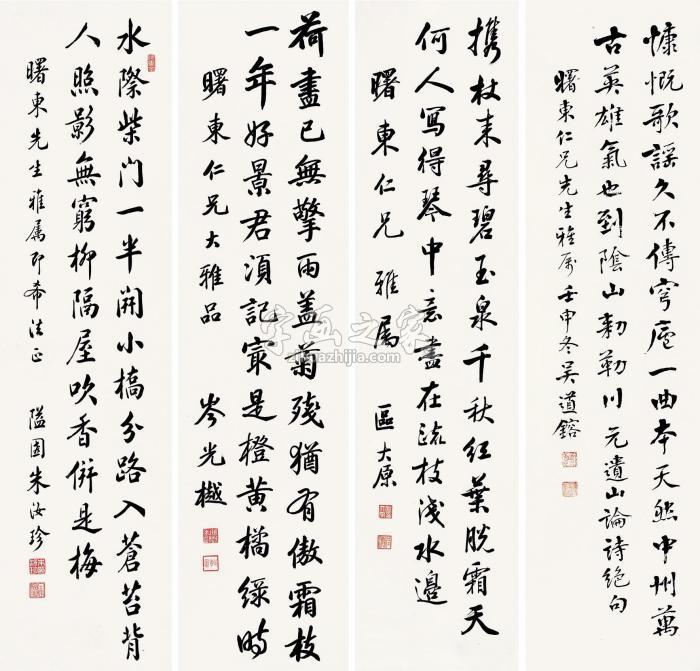 慷慨歌謡久不傳穹廬一曲本天然中州萬
古英雄氣也到陰山勅勒川元遺山論詩絕句
曙東仁兄先生雅屬壬申冬吳道鎔
攜杖来尋碧玉泉千秋紅葉脫霜天
何人寫得琴中意盡在疏枝淺水邊
曙東仁兄 雅屬 區大原
荷盡已無擎雨蓋菊殘猶有傲霜枝
一年好景君須記寂是橙黃橘緑時
曙東仁兄大雅品 岑光樾
水際柴門一半開小橋分路入蒼苔背
人照影無窮柳隔屋吹香併是梅
曙東先生雅屬即希法正 隘園朱汝珍
字画之家
zihuazhijia.com